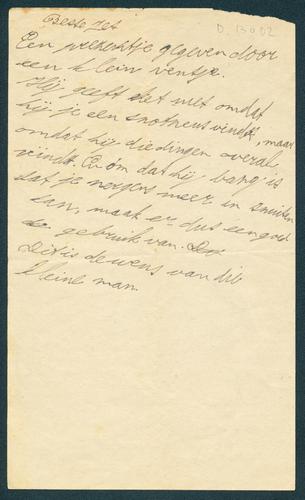 Beste Jet
D.13002
Een welkentje gegeven door
een klein ventje.
Hij geeft het niet omdat
hij je een snotneus vindt, maar
omdat hij die dingen overal
vindt. En om dat hij bang is
dat je nergens meer in snuiten
kan, maak er dus een goed
gebruik van.
Dit is de wens van die
kleine man.